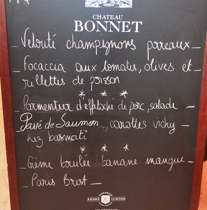 CHATEAU
BONNET
_ Velouté champignons poireaux _
_ Focaccia aux tomates, olives et
rillettes de poisson
* * *
_ Parmentier d'effiloché de porc, salade
_ Pavé de Saumon, carottes vichy
riz basmati
* * *
_ Crème brulée banane mangue _
_ Paris Brest _
ANDRE LURTON